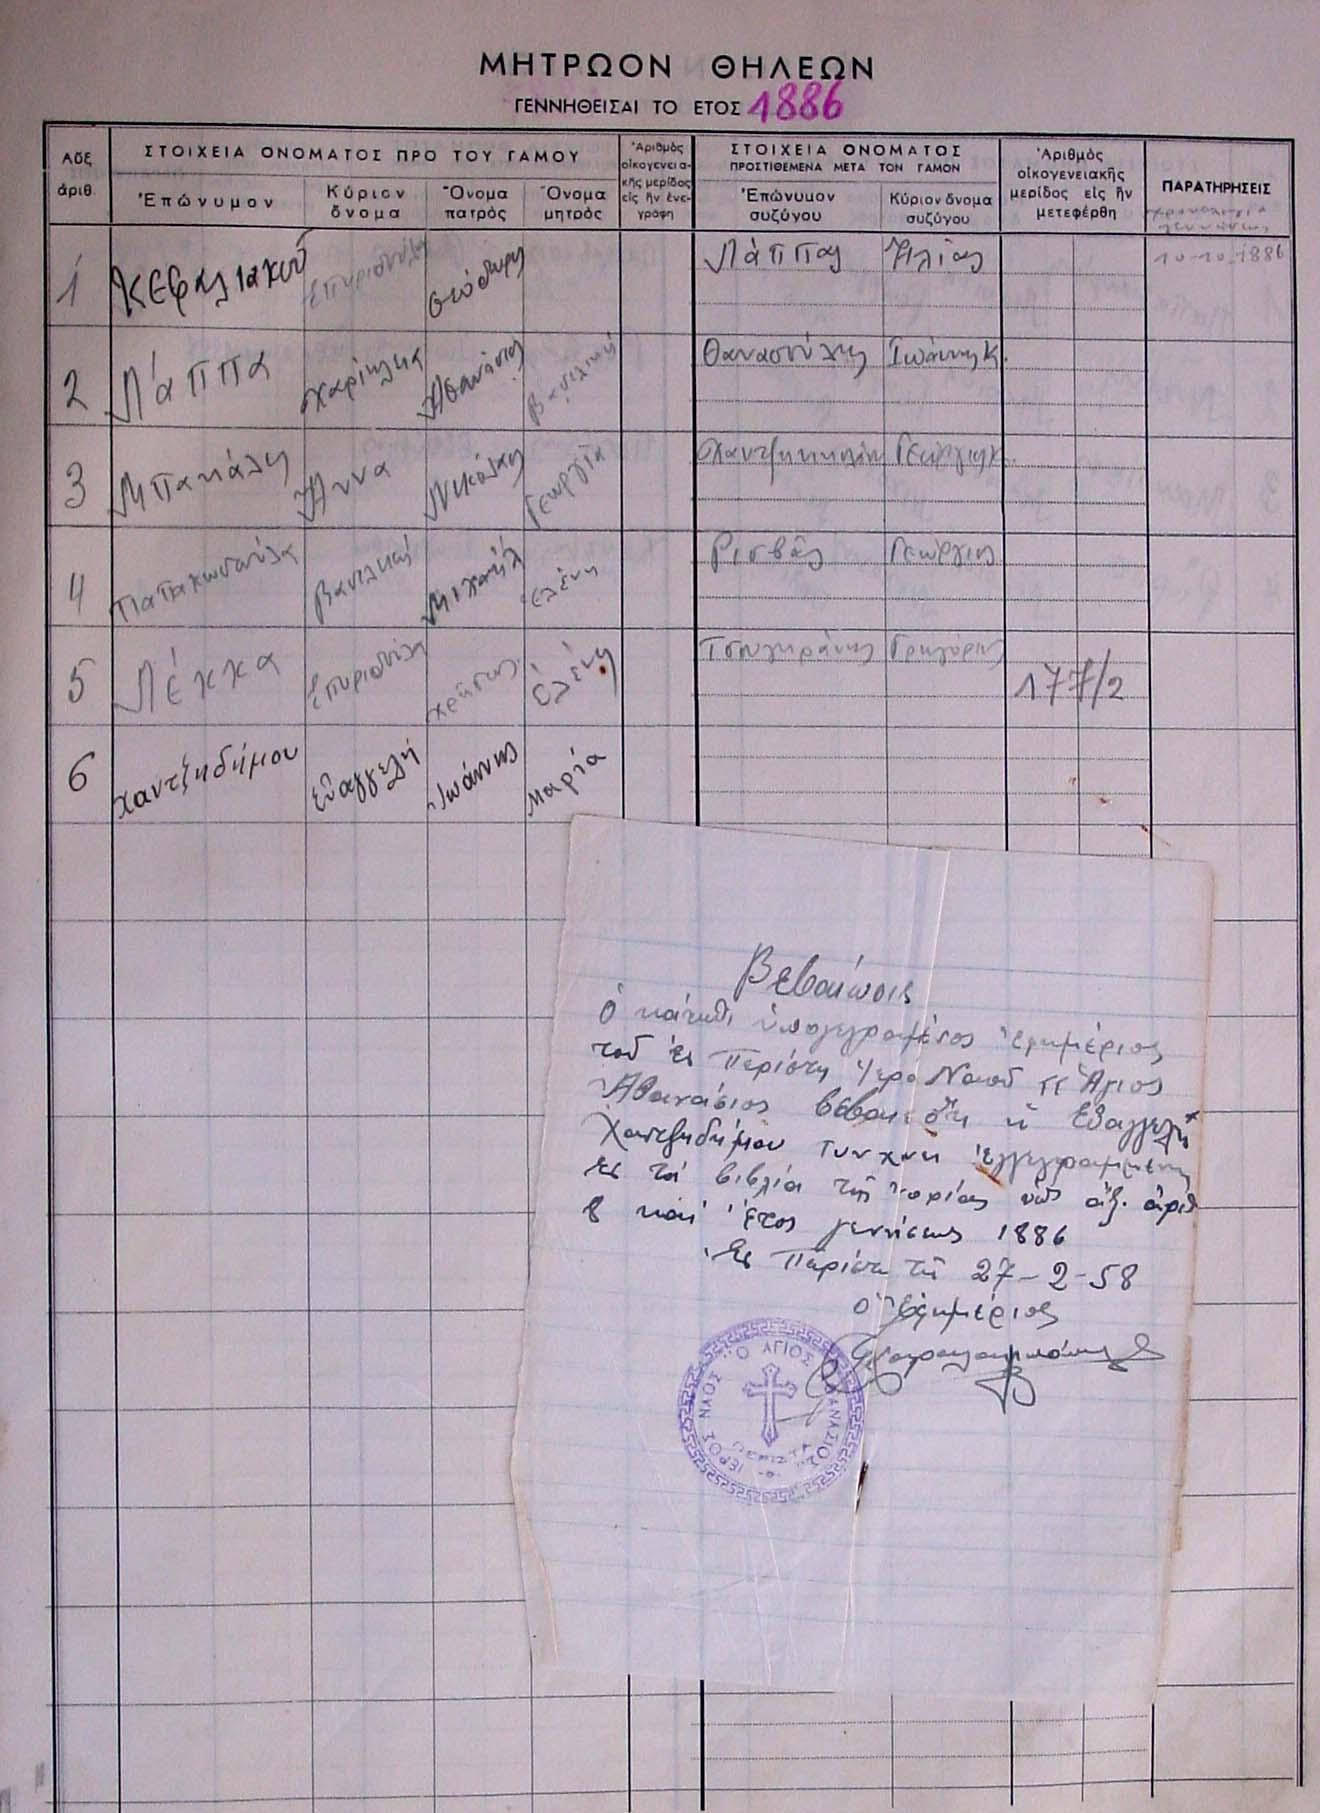 ΜΗΤΡΩΟΝ ΘΗΛΕΩΝ
ΓΕΝΝΗΘΕΙΣΑΙ ΤΟ ΕΤΟΣ 1886
Αὔξ. ἀριθ.
ΣΤΟΙΧΕΙΑ ΟΝΟΜΑΤΟΣ ΠΡΟ ΤΟΥ ΓΑΜΟΥ
Ἐπώνυμον
Κύριον ὄνομα
Ὄνομα πατρός
Ὄνομα μητρός
Ἀριθμὸς οἰκογενειακῆς μερίδος εἰς ἣν ἐνεγράφη
ΣΤΟΙΧΕΙΑ ΟΝΟΜΑΤΟΣ
ΠΡΟΣΤΙΘΕΜΕΝΑ ΜΕΤΑ ΤΟΝ ΓΑΜΟΝ
Ἐπώνυμον συζύγου
Κύριον ὄνομα συζύγου
Ἀριθμὸς οἰκογενειακῆς μερίδος εἰς ἣν μετεφέρθη
ΠΑΡΑΤΗΡΗΣΕΙΣ
χρονολογία γεννήσεως
1 Κεφαλιακοῦ Σπυριδούλα Λάππας Ἠλίας 10-10-1886
2 Λάππα Χαρίκλεια Ἀθανάσιος Βασιλική Θανασούλης Ἰωάννης Κ.
3 Μπακάλη Ἄννα Νικόλαος Γεωργία Γεώργιος Κ.
4 Βασιλική Μιχαήλ Ἑλένη Ρισβᾶς Γεώργιος
5 Λέκκα Σπυριδούλα Χρῆστος Ἑλένη Γρηγόριος 177/2
6 Χαντζηδήμου Εὐαγγελή Ἰωάννης Μαρία
Βεβαίωσις
Ὁ κάτωθι ὑπογεγραμένος ἐφημέριος
τοῦ ἐν Περίστῃ Ἱερο Ναοῦ Ἅγιος
Ἀθανάσιος βεβαι ὅτι ἡ Εὐαγγελή
Χαντζηδήμου τυγχάνει ἐγγεγραμμένη
εἰς τά βιβλία τῆς ὑπ αὔξ. ἀριθ
8 καί ἔτος γενήσεως 1886
Ἐν Περίστᾳ τῇ 27-2-58
Ὁ Ἐφημέριος
ΙΕΡΟΣ ΝΑΟΣ "Ο ΑΓΙΟΣ ΑΘΑΝΑΣΙΟΣ"
ΠΕΡΙΣΤΑ